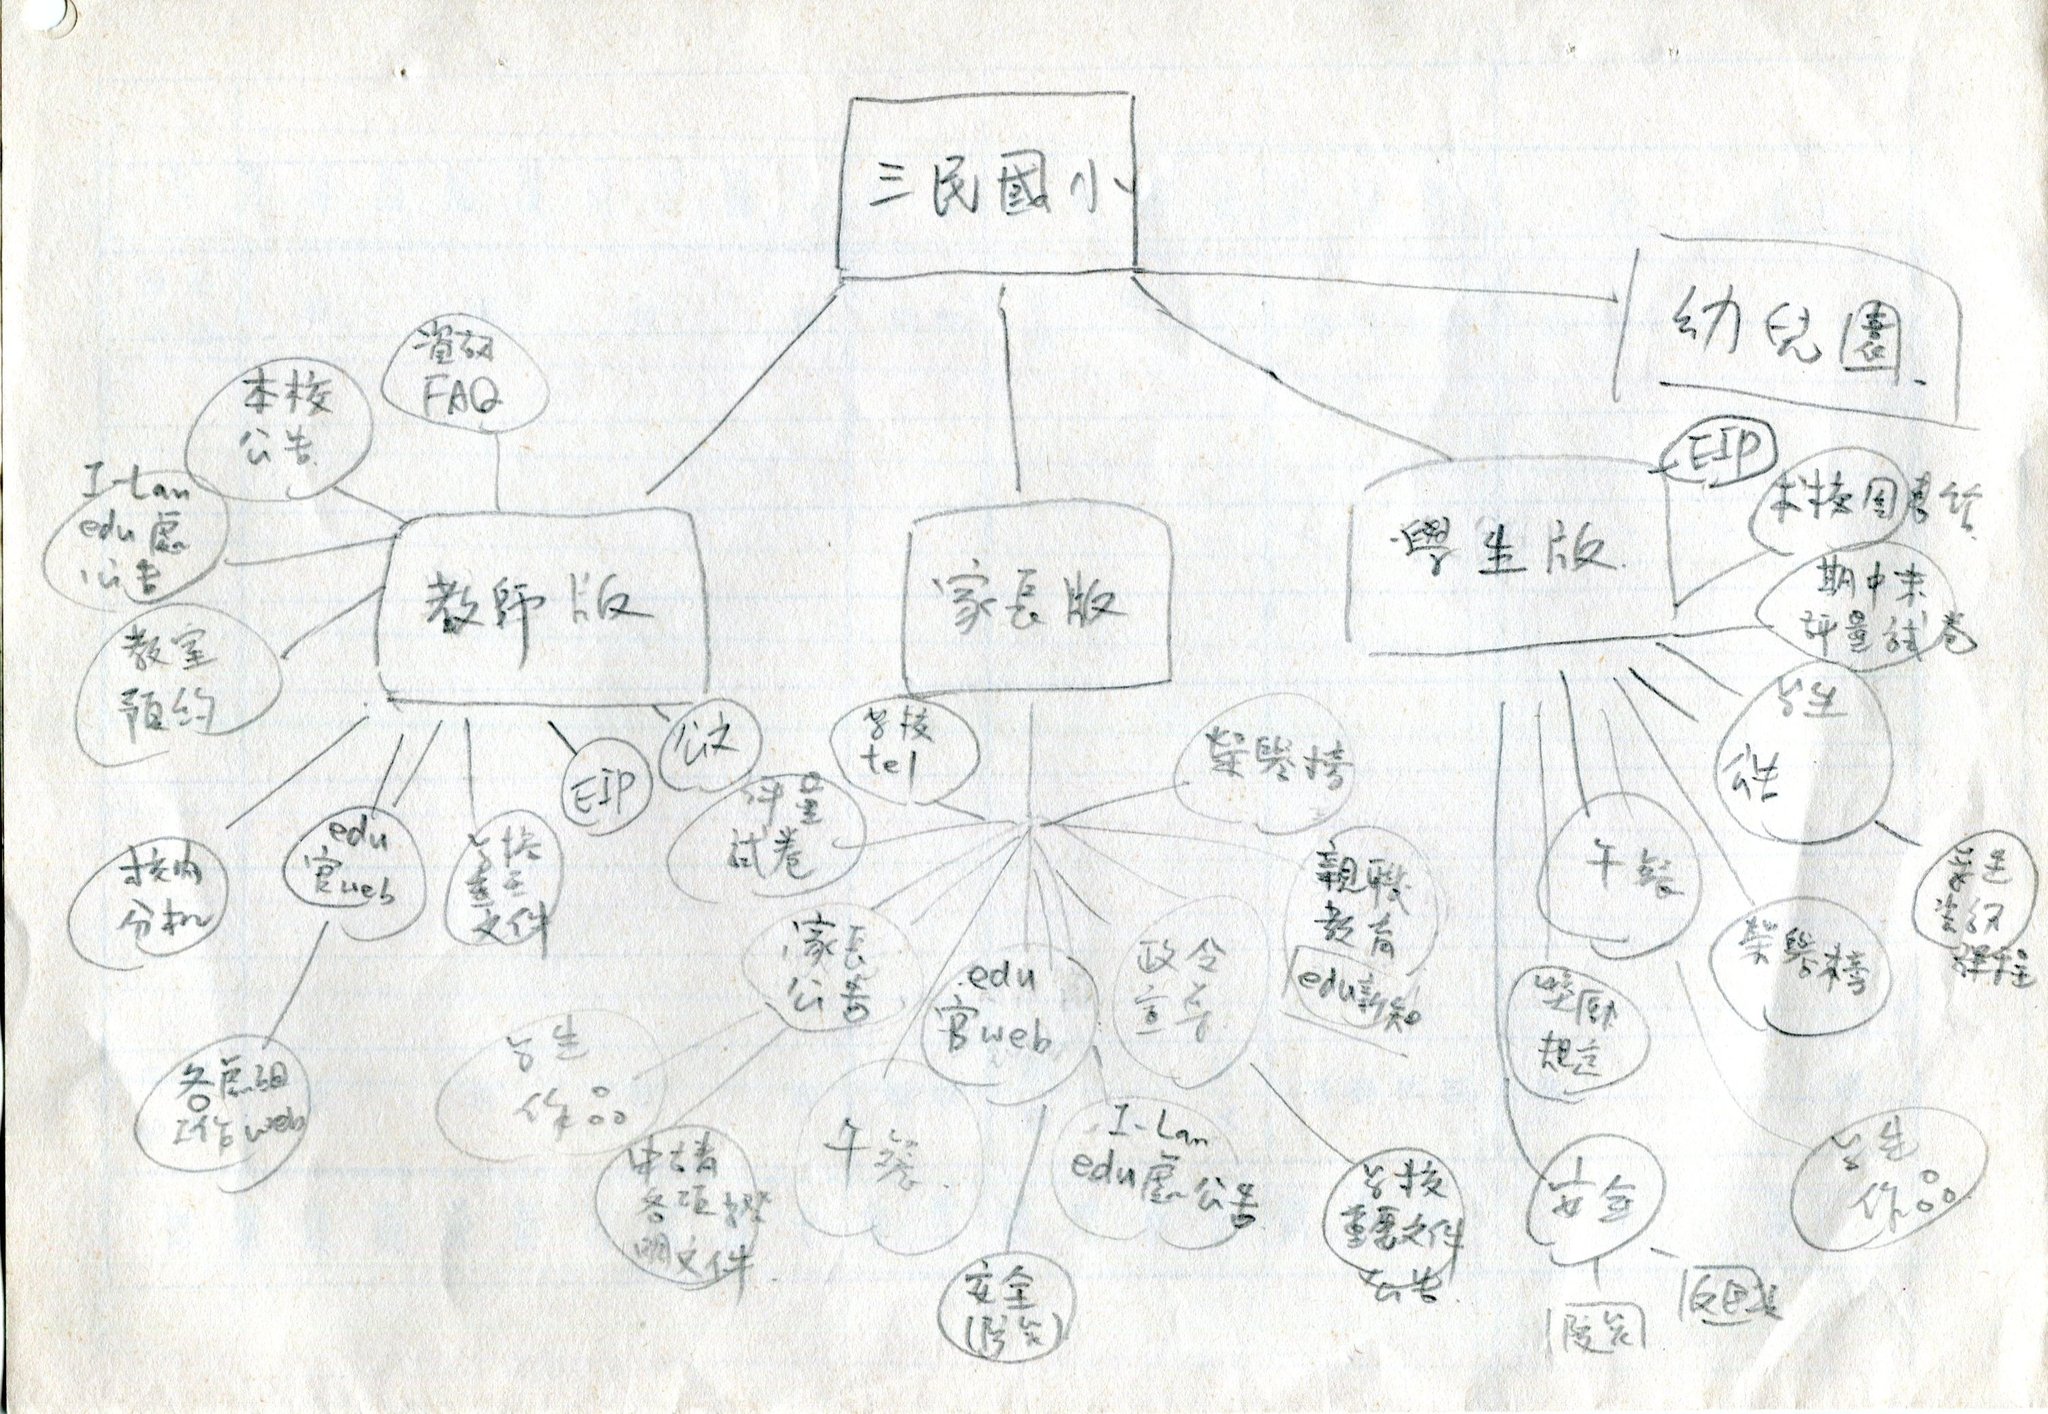 三民國小
幼兒園
資訊
FAQ
本校
公告
I-Lan
edu處
公告
教室
預約
教師版
校內
分機
edu
官web
各處組
工作web
學校
文件
EIP
公文
家長版
學校
tel
評量
試卷
家長
公告
學生
作品
申請
各項證
明文件
午餐
edu
官web
安全
(防災)
I-Lan
edu處公告
政令
宣導
學校
重要文件
公告
榮譽榜
親職
教育
edu新知
學生版
EIP
本校圖書館
期中末
評量試卷
學生
公告
課程
午餐
榮譽榜
規定
學生
作品
安全
防災